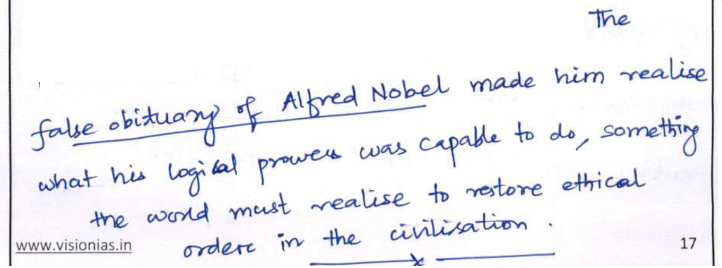 The
false obituary of Alfred Nobel made him realise
what his logical prowess was capable to do, something
the world must realise to restore ethical
order in the civilisation.
www.visionias.in
17